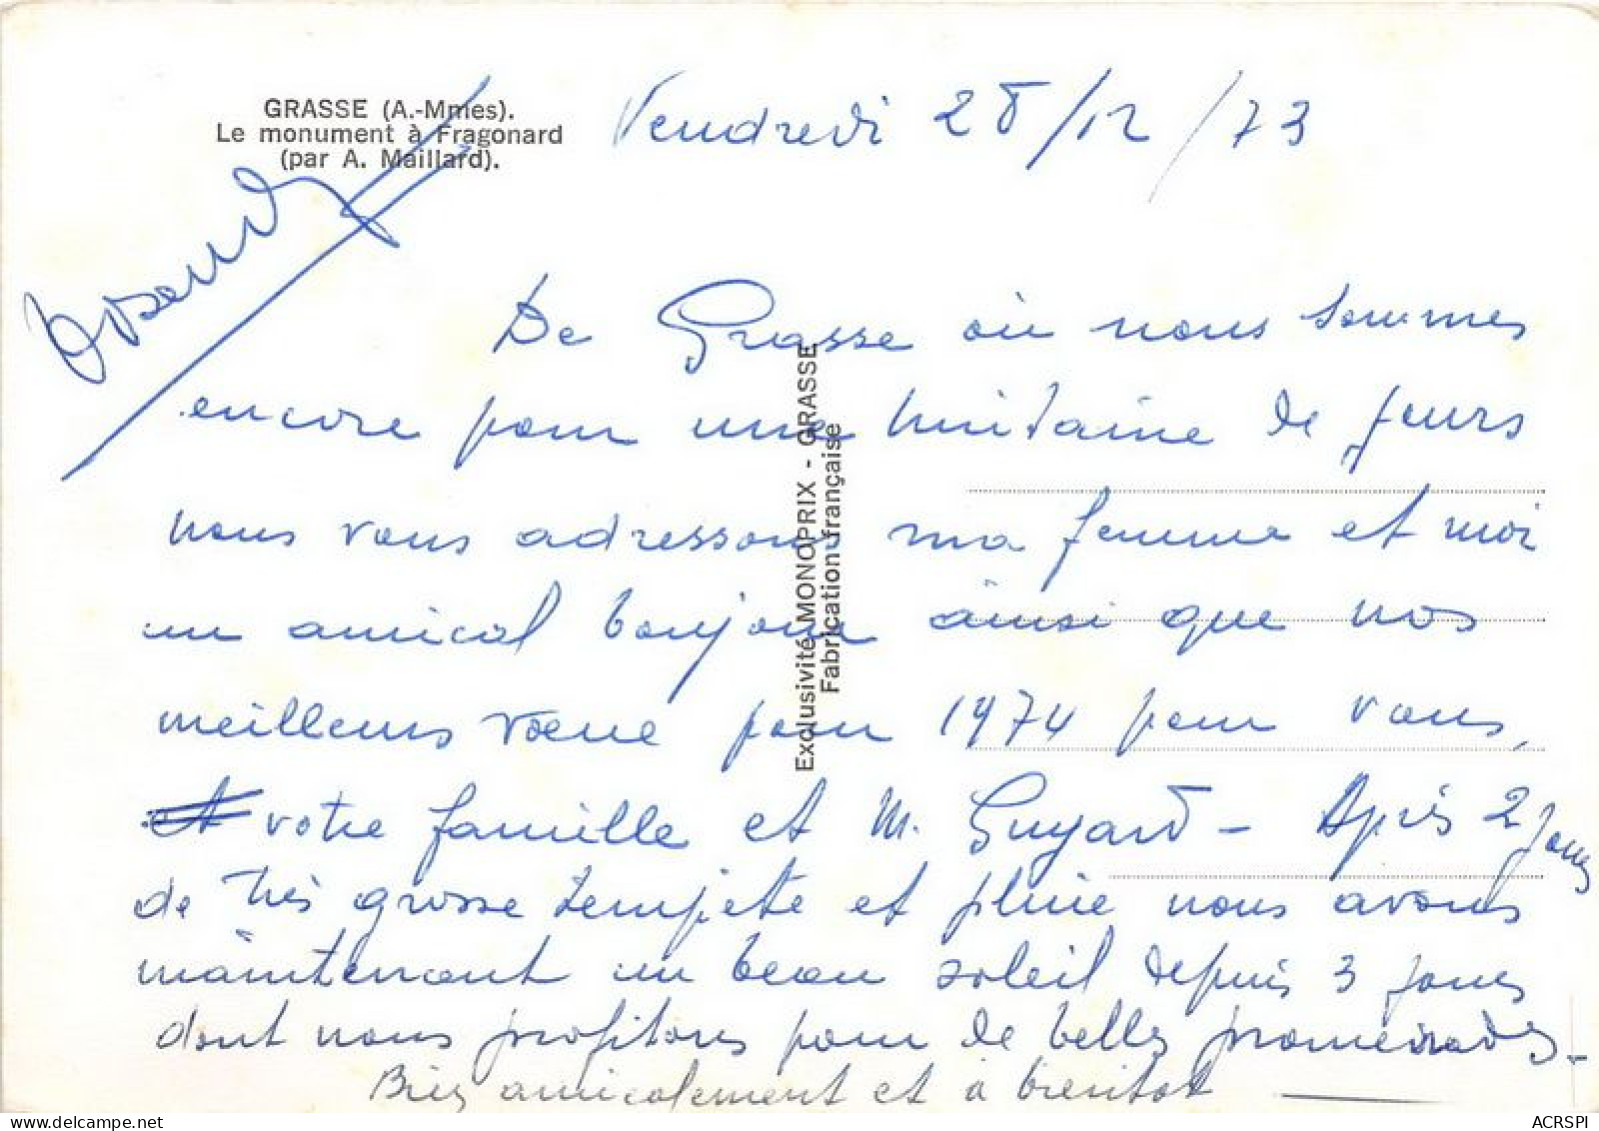 GRASSE (A.-Mmes).
Le monument à Fragonard
(par A. Maillard).
Vendredi 28/12/73
De Grasse où nous sommes
encore pour une huitaine de jours
nous vous adressons ma femme et moi
un amical bonjour ainsi que nos
meilleurs voeux pour 1974 pour vous,
et votre famille et M. Guyard - Après 2 jours
de très grosse tempête et pluie nous avons
maintenant un beau soleil depuis 3 jours
dont nous profitons pour de belles promenades -
Bien amicalement et à bientôt
Exclusivité MONOPRIX - GRASSE
Fabrication française
ACRSPI